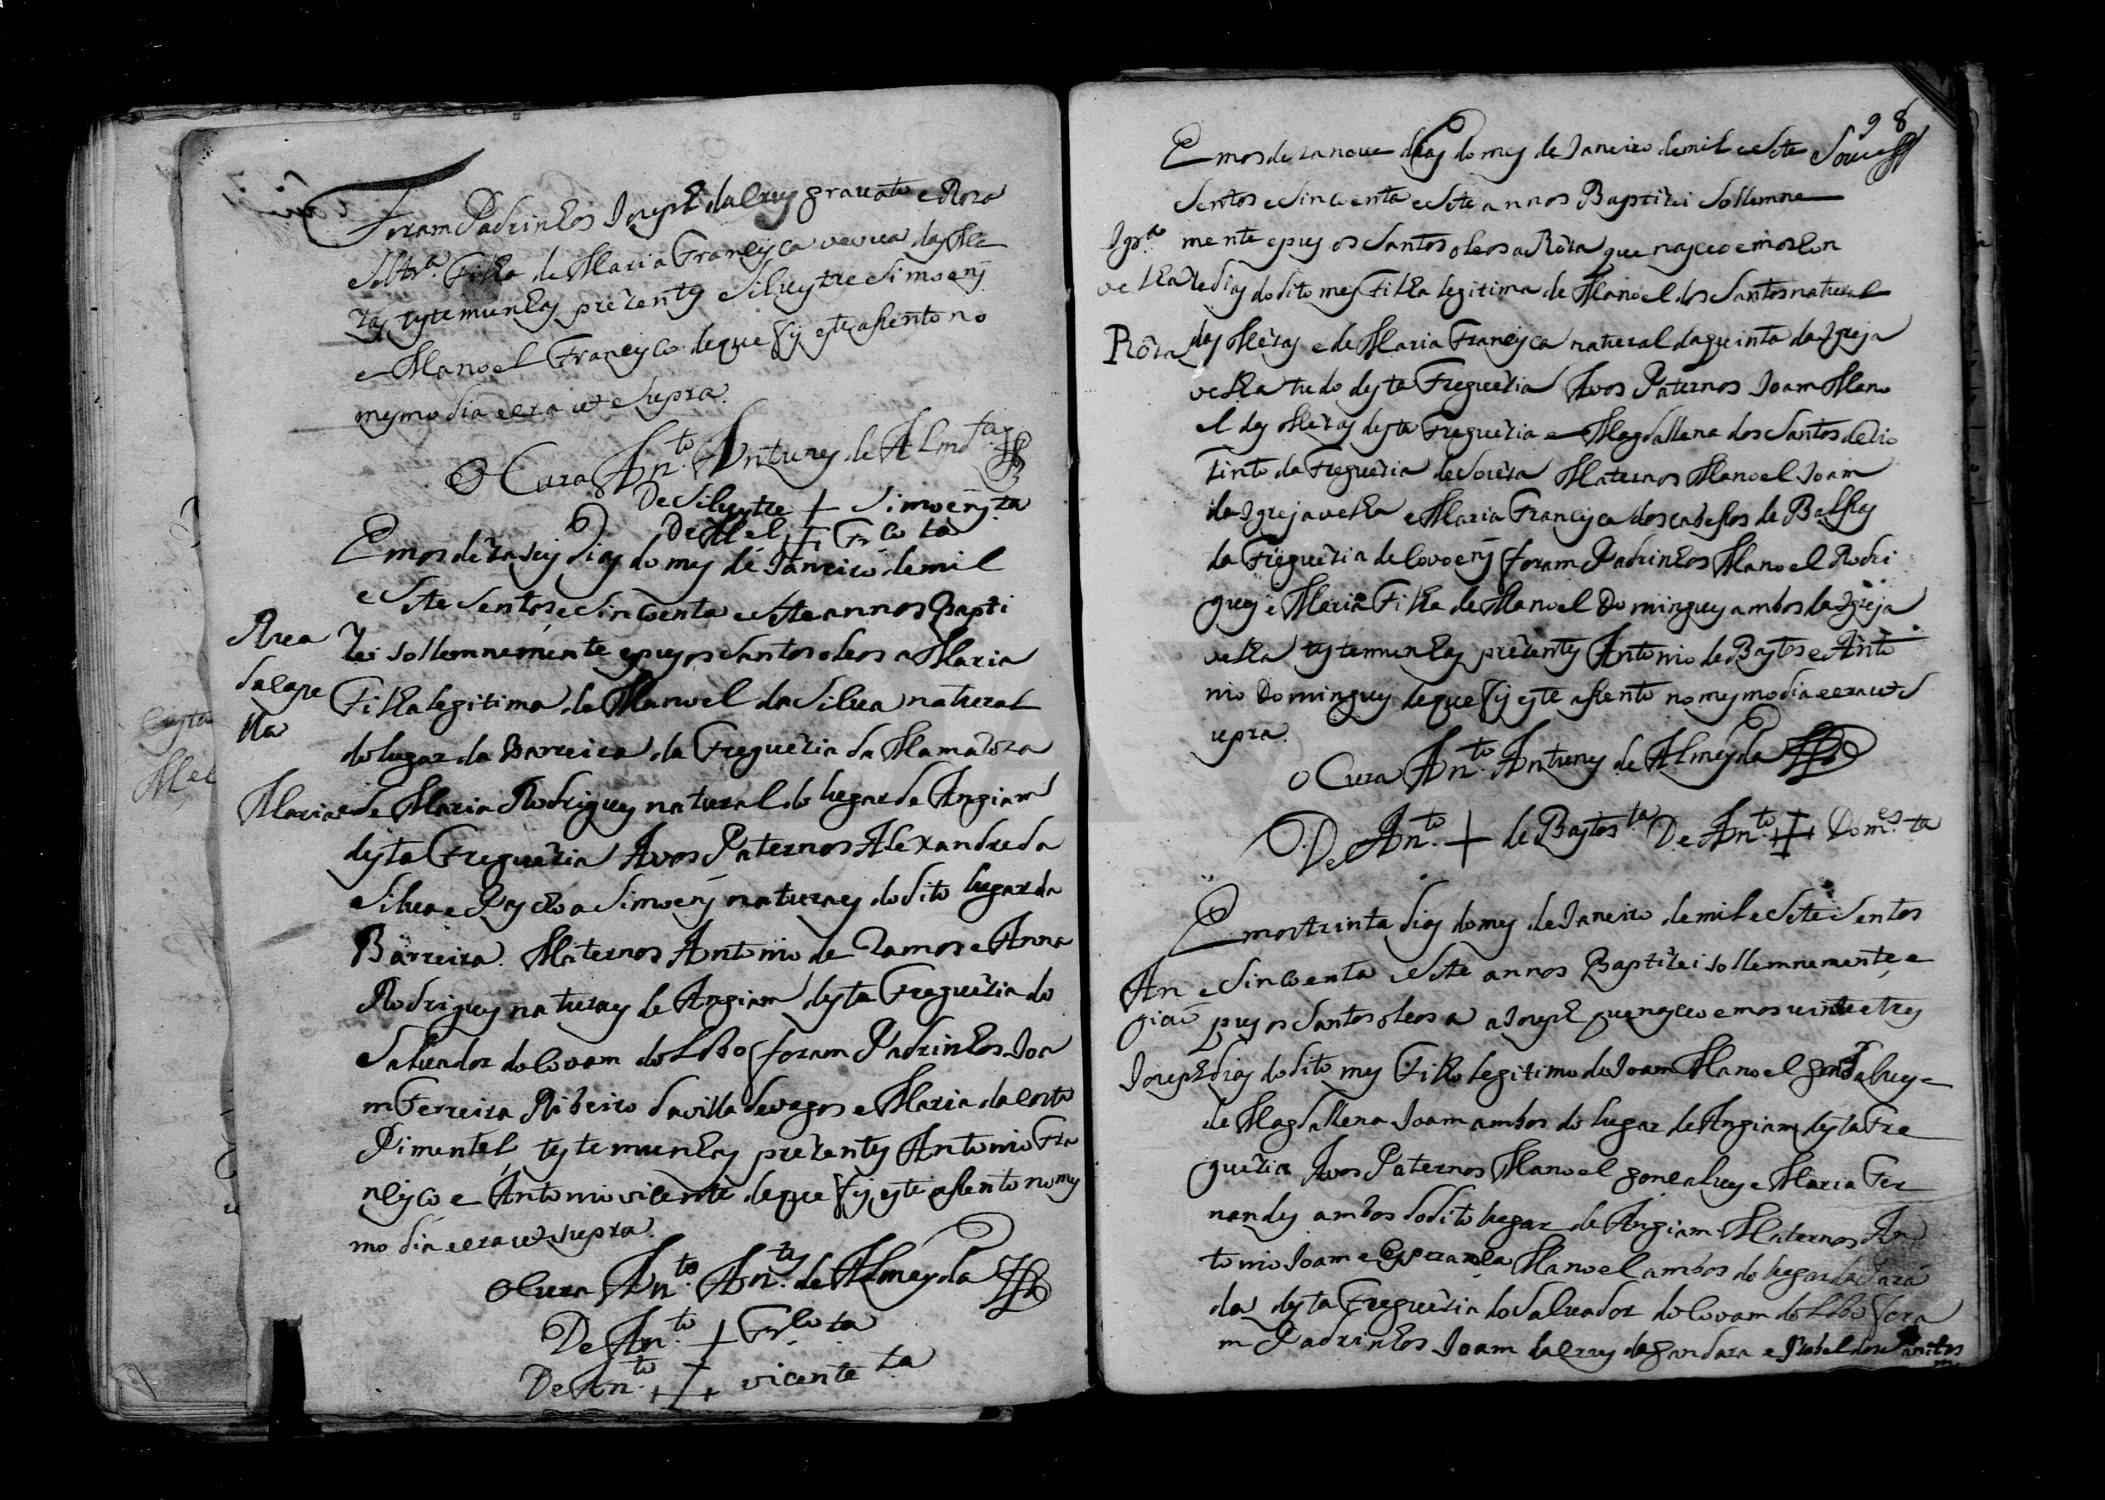 Foram Padrinhos Joseph da Crus gravato e Roza
solt.ra Filha de Maria Francisca veuva das Me
zas testemunhas prezentes Silvestre Simoens
e Manoel Francisco de que fis este asento no
mesmo dia e era ut supra.
O Cura An.to Antunes de Almd.a
De Silvestre + Simoens ta
De M.el + Fr.co ta
Emos dezaseis dias do mes de Janeiro de mil
e sete sentos e sincoenta e sete annos Bapti
Rua
zei sollemnemente e pus os santos oleos a Maria
da cape
Filha legitima de Manoel da Silva natural
lla
do lugar da Barreira da Freguezia da Mamaroza
Maria
e de Maria Rodrigues natural do lugar de Angiam
desta Freguezia Avos Paternos Alexandre da
Silva e Pascoa Simoens naturaes do dito lugar da
Barreira. Maternos Antonio de Ramos e Anna
Rodrigues naturaes de Angiam desta Freguezia do
Salvador do Covam do Lobo foram Padrinhos Joa
m Ferreira Ribeiro da villa de vagos e Maria da Costa
Pimentel testemunhas prezentes Antonio Fra
ncisco e Antonio vicente de que fis este asento no mes
mo dia e era ut supra.
O Cura An.to An.tes de Almeyda
De An.to + Fr.co ta
De An.to + vicente ta
98
Emos dezanove dias do mes de Janeiro de mil e sete
sentos e sincoenta e sete annos Baptizei sollemne
Igr.a
mente e pus os santos oleos a Roza que nasceo emos hon
velha
ze dias do dito mes Filha legitima de Manoel dos Santos natural
Roza
das Mezas e de Maria Francisca natural da quinta da Igreja
velha tudo desta Freguezia Avos Paternos Joam Mano
el das Mezas desta Freguezia e Magdallena dos Santos de Rio
tinto da Freguezia de Soza Maternos Manoel Joam
da Igreja velha e Maria Francisca dos cabessos de Balsas
da Freguezia de Covoens foram Padrinhos Manoel Rodri
gues e Maria Filha de Manoel Domingues ambos da Igreja
velha testemunhas prezentes Antonio de Bastos e Anto
nio Domingues de que fis este asento no mesmo dia e era ut s
upra.
O Cura An.to Antunes de Almeyda
De An.to + de Bastos ta De An.to + Dom.es ta
Emos trinta dias do mes de Janeiro de mil e sete sentos
An
e sincoenta e sete annos Baptizei sollemnemente, e
giaõ
pus os santos oleos a a Joseph que nasceo emos vinte e tres
Joseph
dias do dito mes Filho legitimo de Joam Manoel gonsalves e
de Magdallena Joam ambos do lugar de Angiam desta Fre
guezia Avos Paternos Manoel gonsalves e Maria Fer
nandes ambos do dito lugar de Angiam Maternos An
tonio Joam e Esperansa Manoel ambos do lugar da
da desta Freguezia do Salvador do Covam do Lobo fora
m Padrinhos Joam da Crus da gandara e Izabel dos Santos